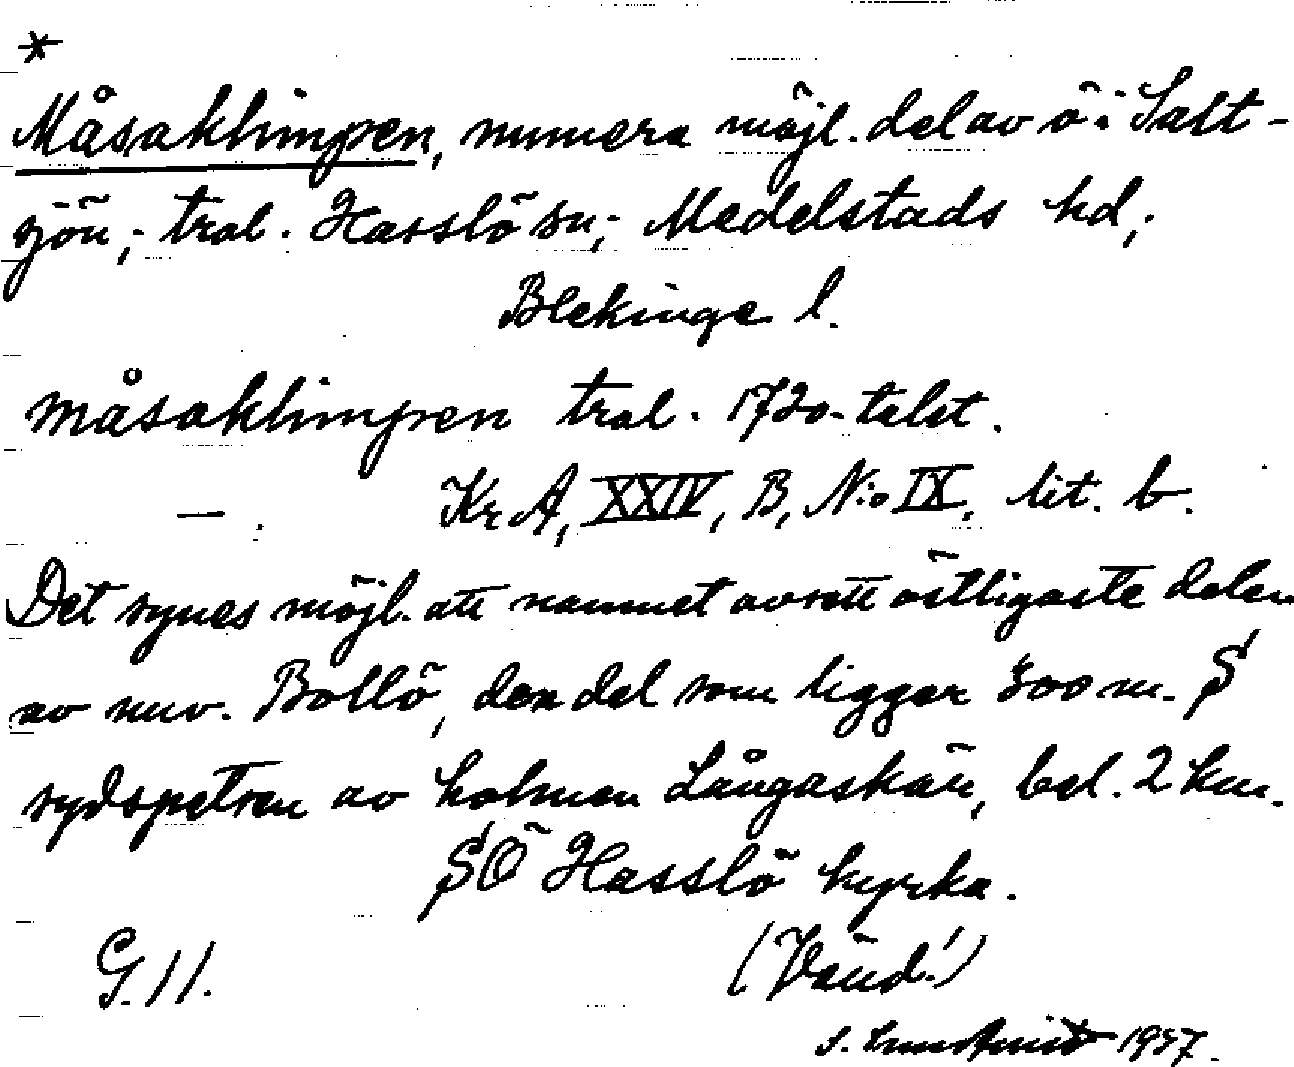 *
Måsaklimpen, numera möjl. del av ö i Salt-
sjön, tral. Hasslö sn, Medelstads hd,
Blekinge l.
måsaklimpen tral. 1720-talet.
Kr A, XXIV, B, N:o IX, lit. b.
Det synes möjl. att namnet avsett östligaste delen
av nuv. Bollö, den del som ligger 300 m. S
sydspetsen av holmen Långaskär, bel. 2 km.
SÖ Hasslö kyrka.
G. 11. (Vänd!)
S. 1957.